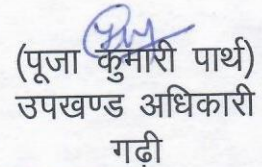 (पूजा कुमारी पार्थ)
उपखण्ड अधिकारी
गढ़ी